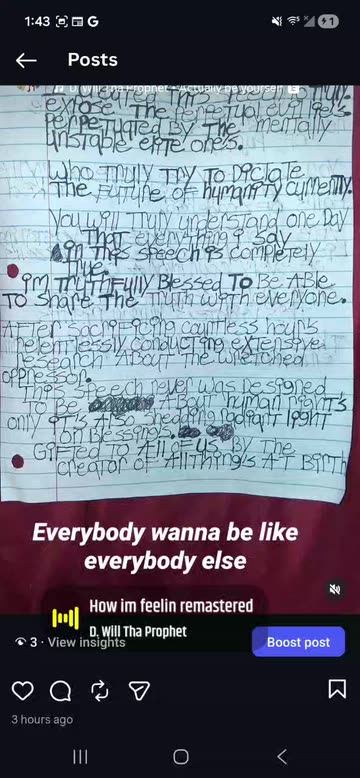 1:43
1
Posts
D. Will Tha Prophet • Actually be yourself
expose The perpetual lie's
perpetuated by The mentally
unstable elite ones.
Who Truly Try To Dictate
The Future of humanity currently.
You will Truly understand one Day
That everything i say
in This speech is completely
True.
i'm Truthfully Blessed To Be ABle
To Share The Truth with everyone.
After sacrificing countless hours
relentlessly conducting extensive
research About The wretched
oppressor.
This speech never was Designed
To Be About human right's
only it's Also sheading radiant light
on Blessings
Gifted To All of us By The
creator of All Thing's AT Birth
Everybody wanna be like
everybody else
How im feelin remastered
D. Will Tha Prophet
3 · View insights
Boost post
3 hours ago